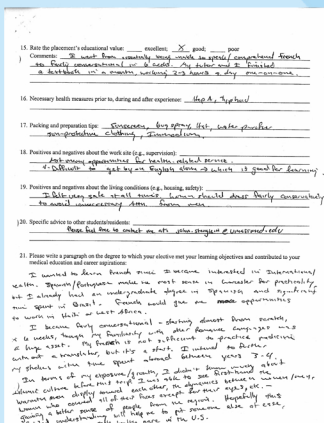 15. Rate the placement's educational value: ___ excellent; X good; ___ poor
Comments: I went from creatively being unable to speak/comprehend French
to fairly conversational in 6 weeks. My tutor and I finished
a textbook in a month, working 2-3 hours a day one-on-one.
16. Necessary health measures prior to, during and after experience: Hep A, Typhoid
17. Packing and preparation tips: Sunscreen, bug spray, Hat, water purifier
sun-protective clothing,
18. Positives and negatives about the work site (e.g., supervision):
+ many opportunities for health related service.
- Difficult to get by on English alone → which is good for learning
19. Positives and negatives about the living conditions (e.g., housing, safety):
I felt very safe at all times. Women should dress fairly conservatively
to avoid unnecessary from men.
20. Specific advice to other students/residents:
Please feel free to contact me at:
21. Please write a paragraph on the degree to which your elective met your learning objectives and contributed to your
medical education and career aspirations:
I wanted to learn French since I became interested in International
Health. Spanish/Portuguese make the most sense in for practicality,
but I already had an undergraduate degree in Spanish and significant
time spent in Brazil. French would give me more opportunities
to work in Haiti or West Africa.
I became fairly conversational - starting almost from scratch,
in 6 weeks, though my familiarity with other romance languages was
a huge asset. My French is not sufficient to practice medicine
without a translator, but it's a start. I intend to further
my studies with time spent abroad between years 3-4.
In terms of my exposure/growth, I didn't know much about
Islamic culture before this trip. I was able to see firsthand the
warmth men display toward each other, the dynamics between men/women,
women who covered all of their faces except for their eyes, etc.
giving a better sense of people from the region. Hopefully this
understanding will help me to put someone else at ease,
in the U.S.